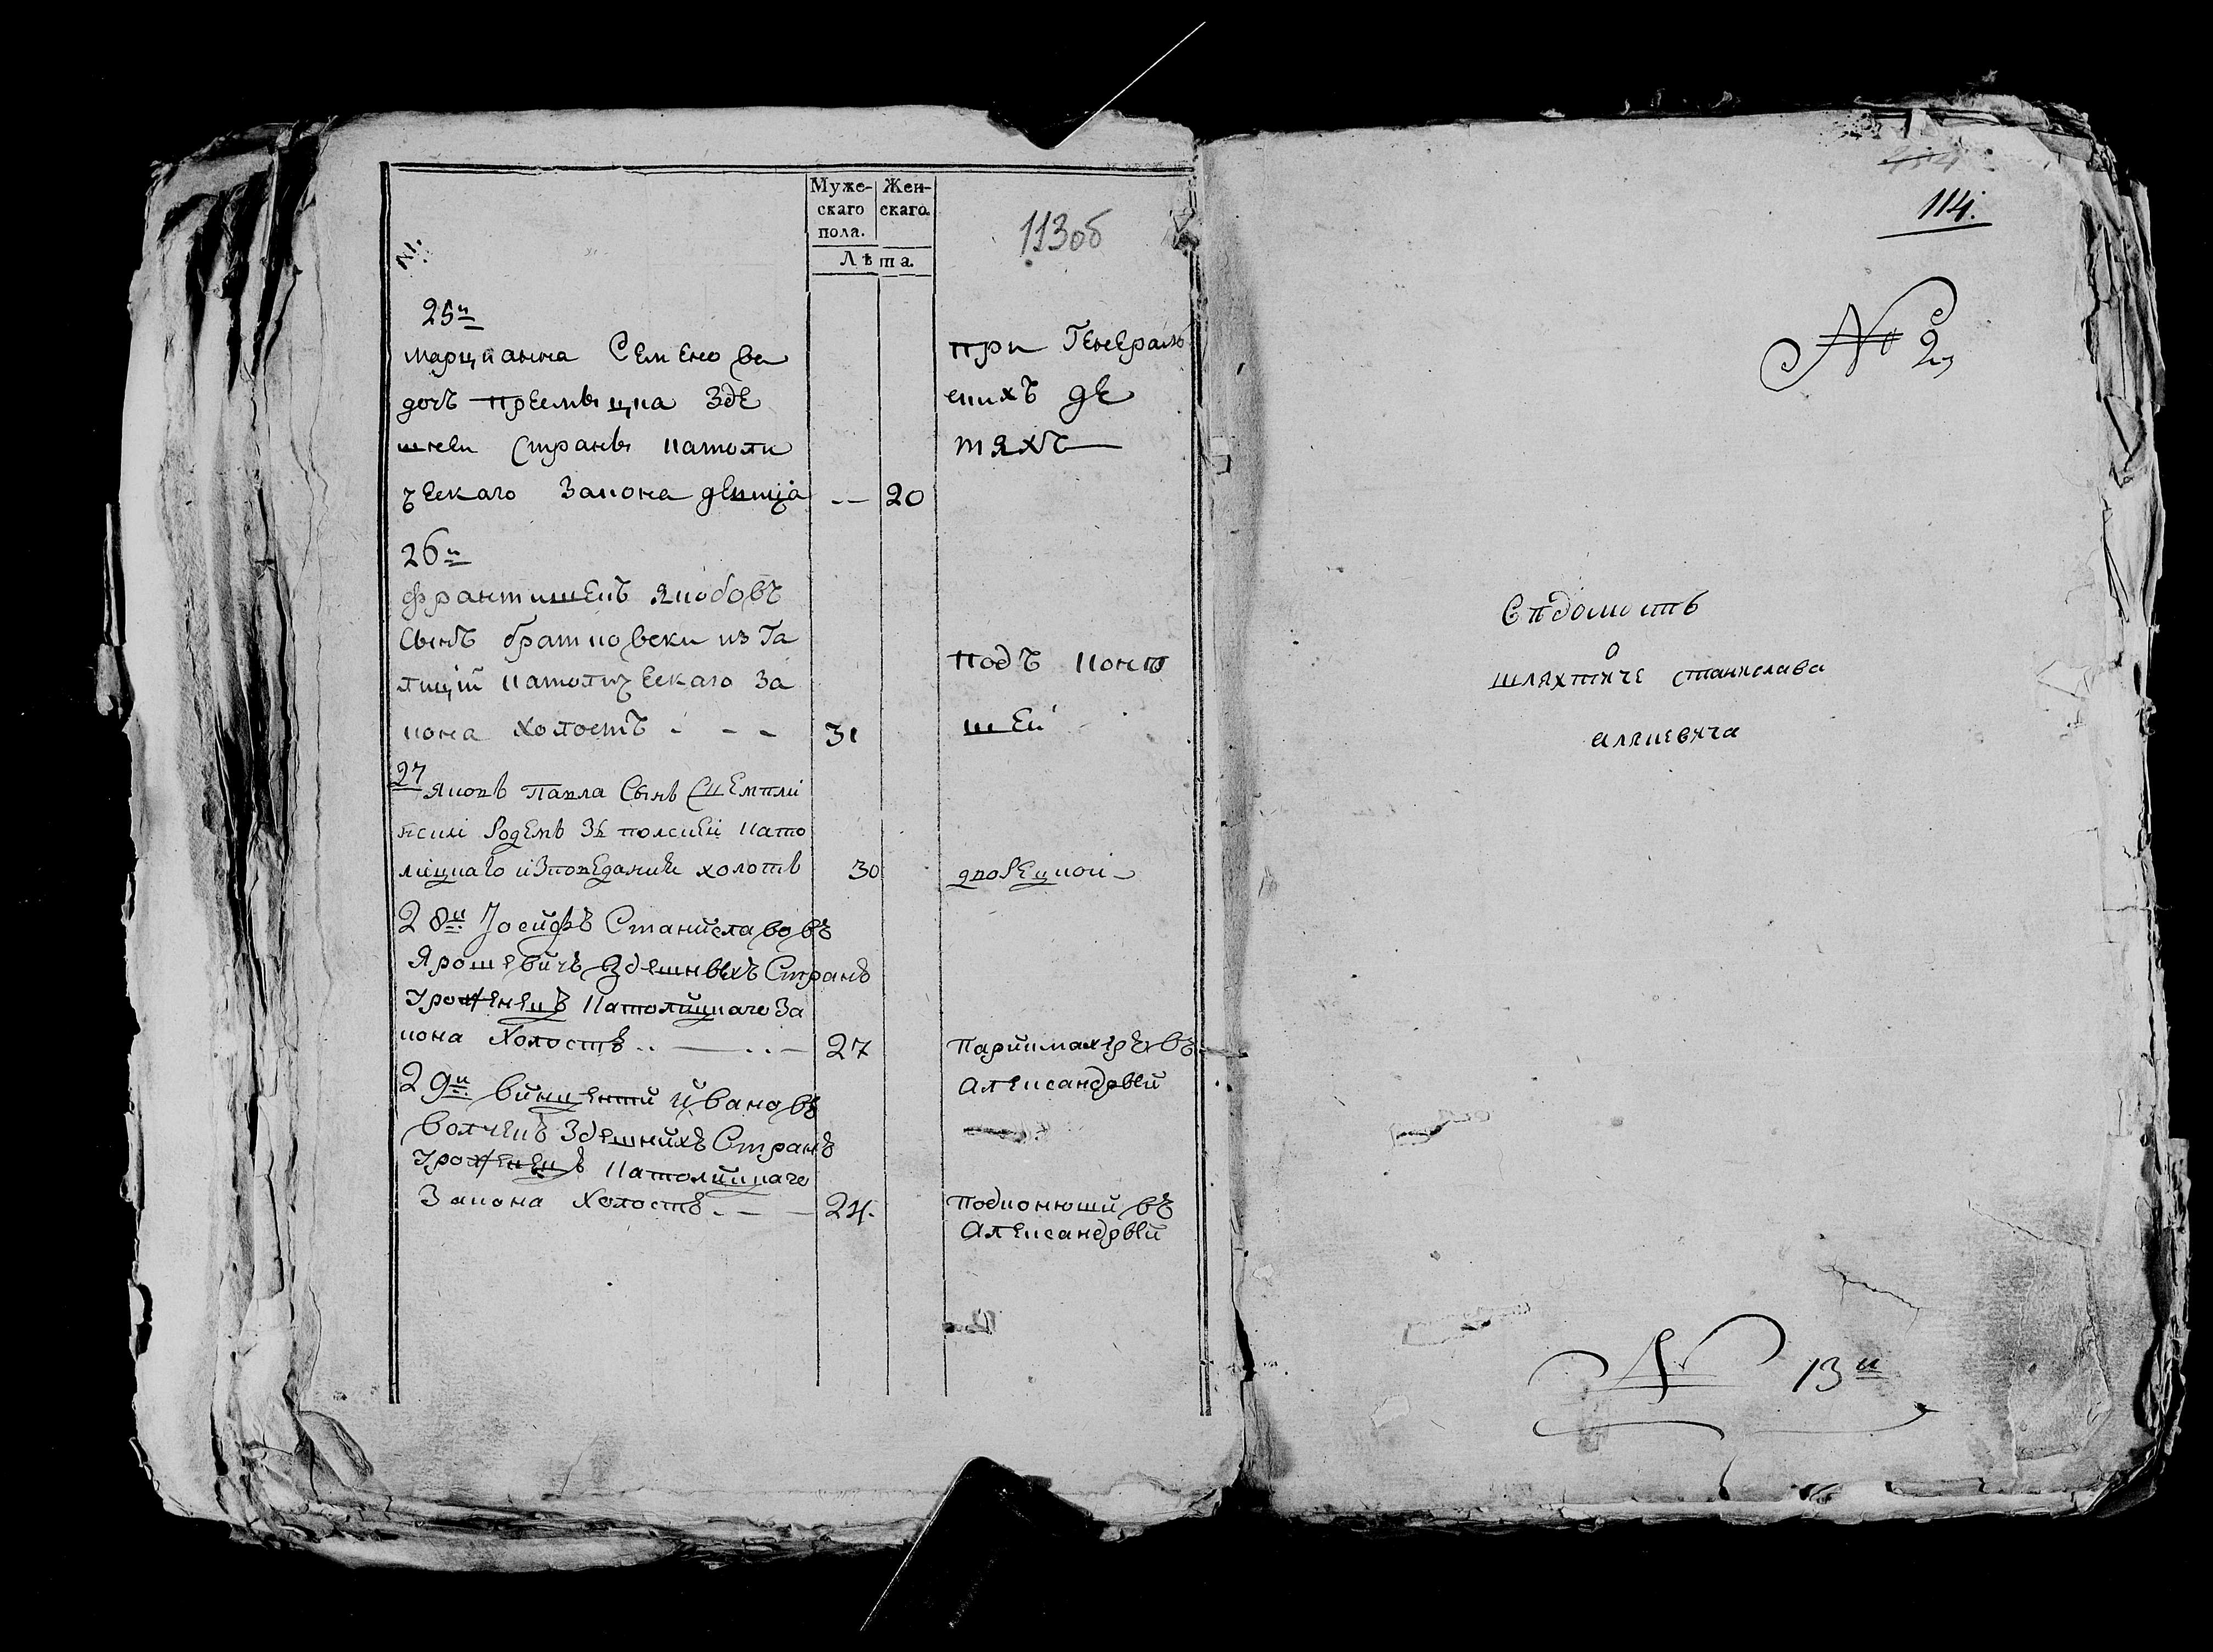 №:
Муже-
скаго
пола.
Жен-
скаго.
Лѣта.
113об
25й
марцианна Семенова
дочъ кремвицка зде
шнеи странвı католи
ческаго закона девица -- 20
при Генераль
скихъ де
тяхъ
26й
франтишекъ якобовъ
сынъ братковски из Га
лиций католическаго за
кона холостъ - - - 31
подъ коню
шей
27 Яковъ Павла Сынъ
Родемъ Зъ полскей като
лицкаго изповедания холотъ 30
дворецкой
28й Iосифъ Станиславовъ
Ярошевичъ Здешнвıхъ Странъ
Уроженецъ Католицкаго За
кона Холостъ .. — .. — 27
Парикмахеръ въ
Александрвıи
29й винценти ивановъ
волчекъ Здешнихъ Странъ
Уроженецъ Католицкаго
Закона Холостъ. — — 24.
подконюши въ
Александрвıи
114.
№ 2
о
шляхтиче станислава
аляцевича
№ 13й